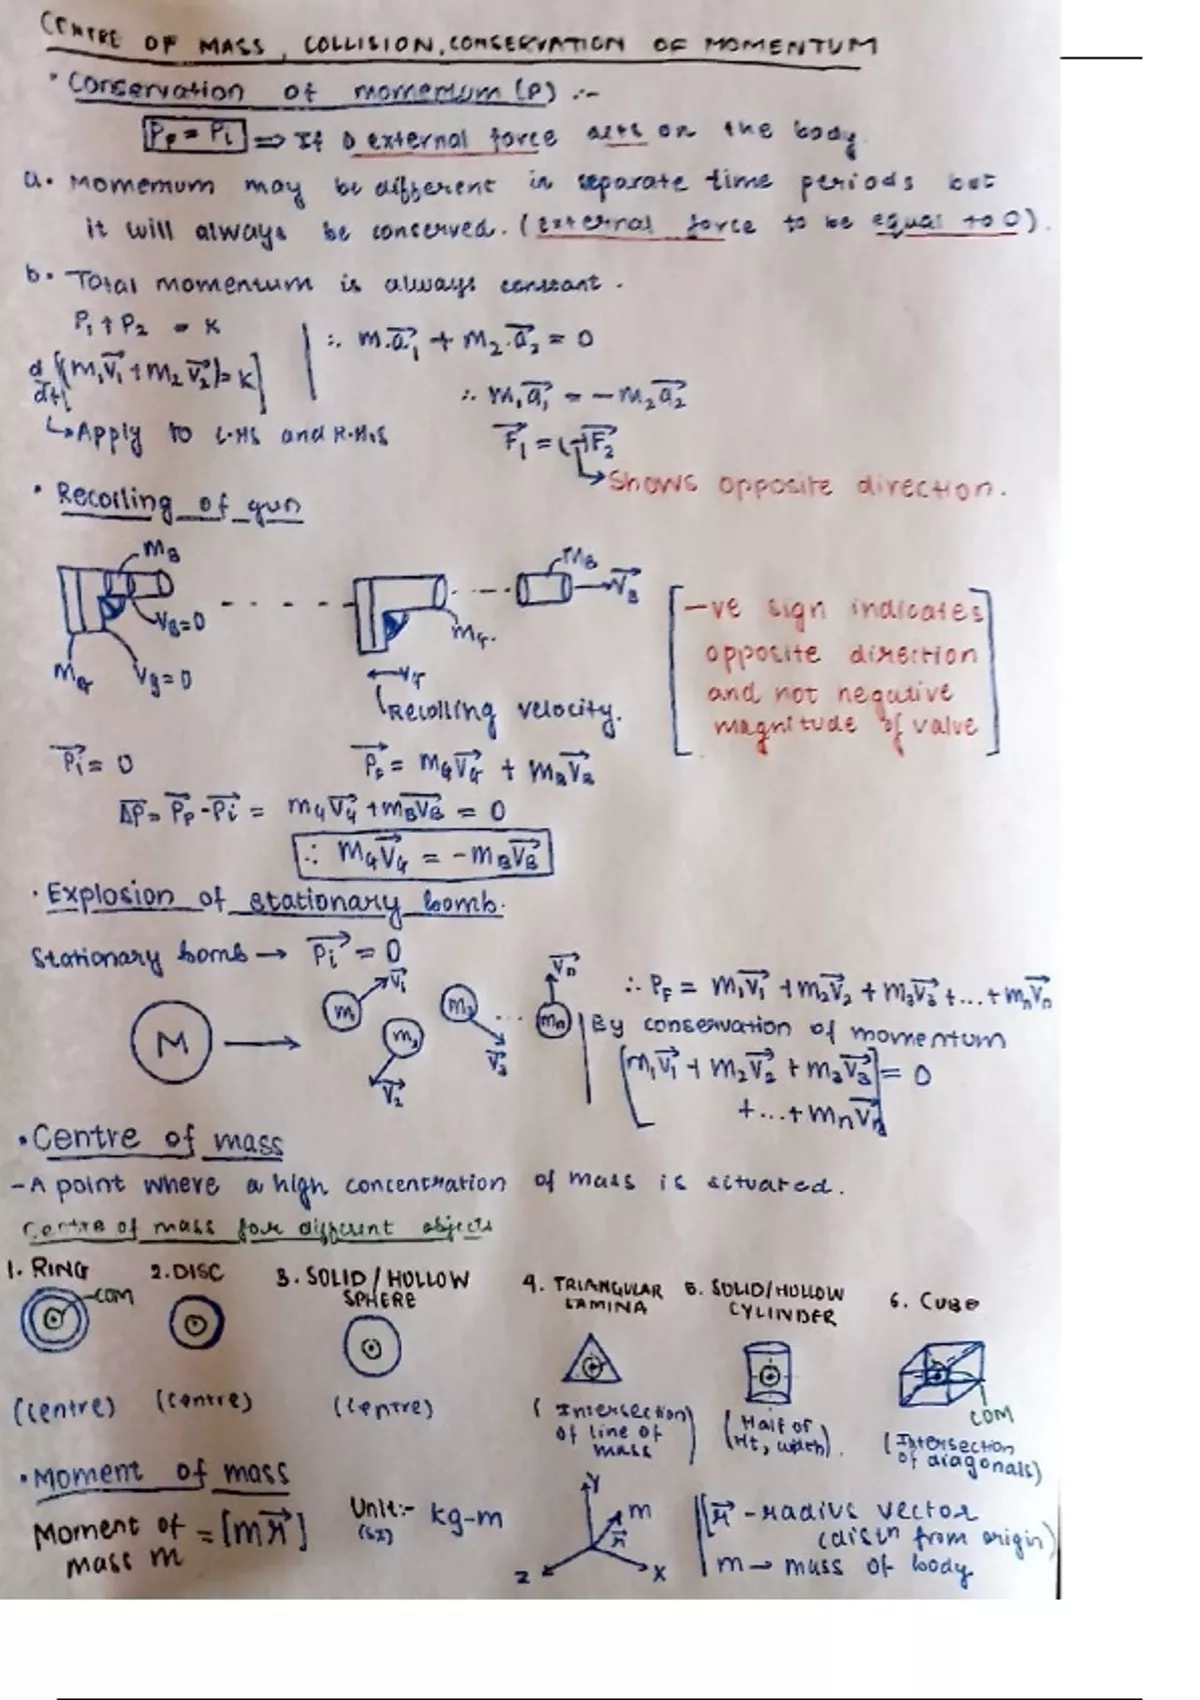 CENTRE OF MASS, COLLISION, CONSERVATION OF MOMENTUM
• Conservation of momentum (P) :-
P_F = P_i ⇒ If 0 external force acts on the body.
a. Momemum may be different in separate time periods but
it will always be conserved. (external force to be equal to 0).
b. Total momentum is always constant.
P₁ + P₂ = K
d/dt [(m₁v⃗₁ + m₂v⃗₂) = K]
↳ Apply to L.HS and R.H.S
∴ m.a⃗₁ + m₂.a⃗₂ = 0
∴ m₁a⃗₁ = -m₂a⃗₂
F⃗₁ = (-)F⃗₂
↳ Shows opposite direction.
• Recoiling of gun
m_B
V_B=0
m_G
V_g=0
m_B
V⃗_B
m_G
V_G
Recoiling velocity.
-ve sign indicates
opposite direction
and not negative
magnitude of value
P⃗i = 0
P⃗_F = m_G V⃗_G + m_B V⃗_B
Δ⃗P = P⃗_F - P⃗i = m_G V⃗_G + m_B V⃗_B = 0
∴ m_G V⃗_G = -m_B V⃗_B
• Explosion of stationary bomb.
Stationary bomb → P⃗i = 0
M
m₁
V⃗₁
m₂
V⃗₂
m₃
V⃗₃
...
m_n
V⃗_n
∴ P_F = m₁V⃗₁ + m₂V⃗₂ + m₃V⃗₃ + ... + m_nV⃗_n
By conservation of momentum
[m₁V⃗₁ + m₂V⃗₂ + m₃V⃗₃
+ ... + m_nV⃗_n] = 0
• Centre of mass
- A point where a high concentration of mass is situated.
Centre of mass for different objects
1. RING
COM
(centre)
2. DISC
(centre)
3. SOLID/HOLLOW
SPHERE
(centre)
4. TRIANGULAR
LAMINA
(Intersection
of line of
mass)
5. SOLID/HOLLOW
CYLINDER
(Half of
Ht, width).
6. CUBE
COM
(Intersection
of diagonals)
• Moment of mass
Moment of
mass m = [m r⃗]
Unit:- kg-m
(SI)
Y
m
r⃗
X
Z
r⃗ - radius vector
(distn from origin)
m → mass of body